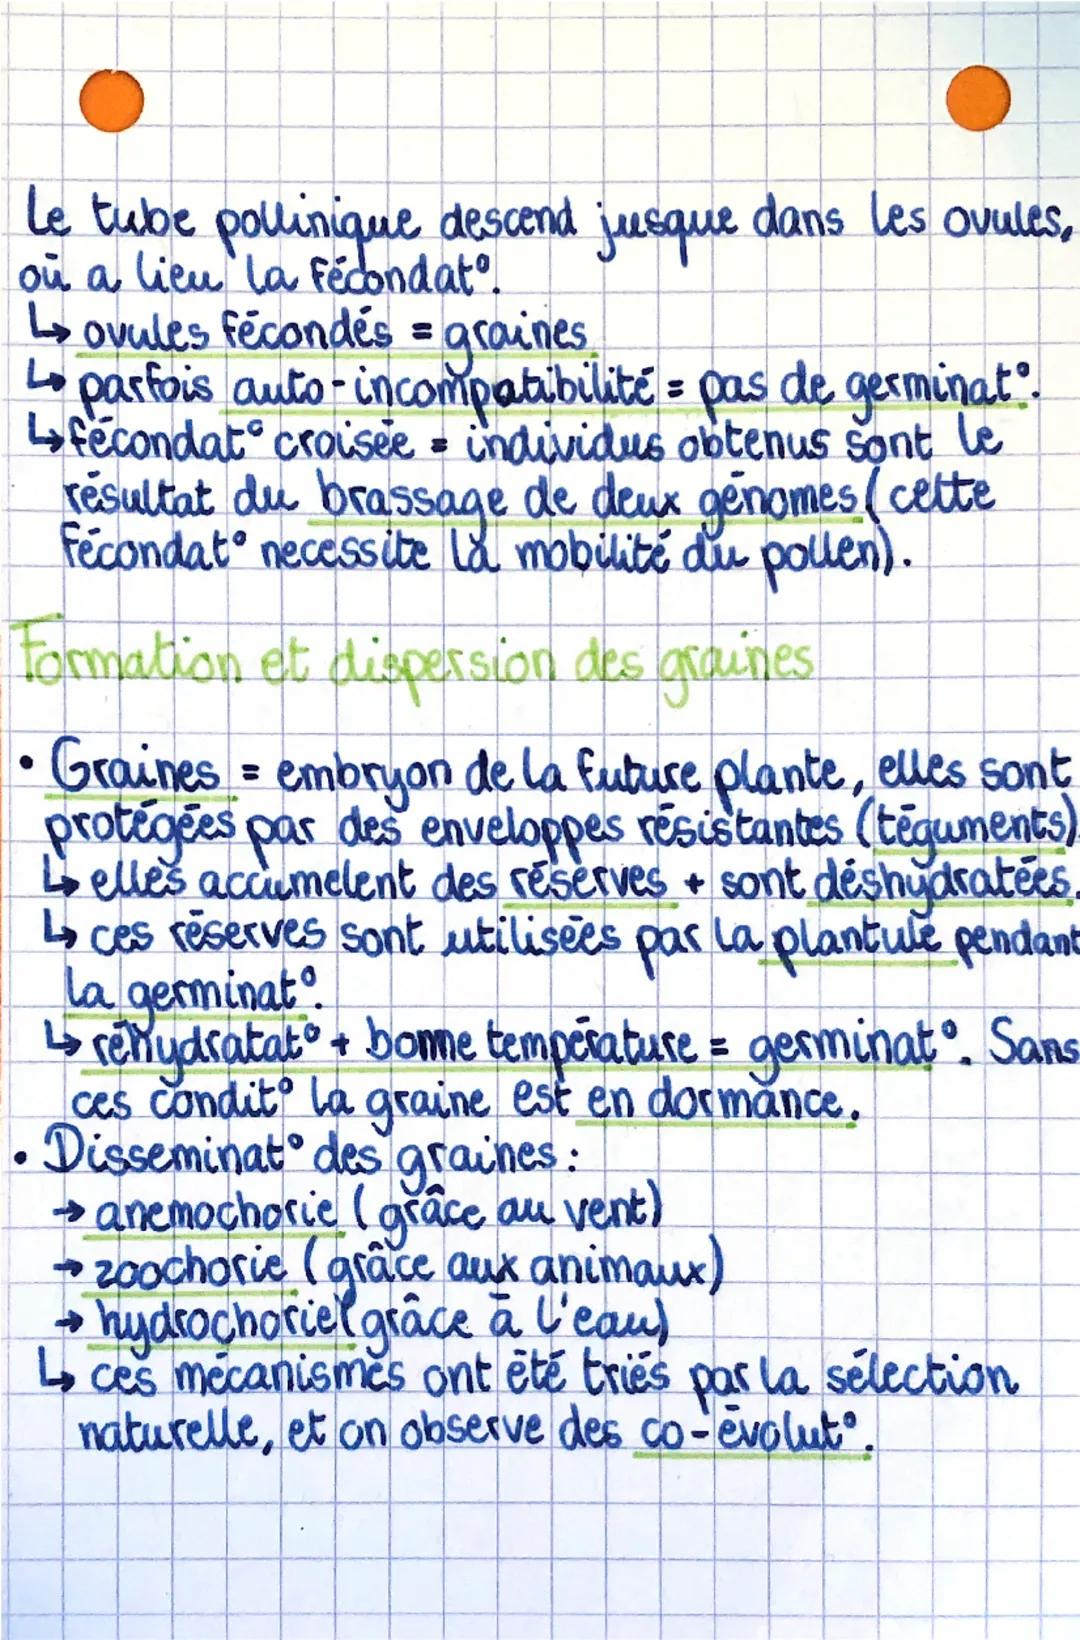 Le tube pollinique descend jusque dans les ovules,
où a lieu la fécondat°.
↳ ovules fécondés = graines
↳ parfois auto-incompatibilité = pas de germinat°.
↳ fécondat° croisée = individus obtenus sont le
résultat du brassage de deux génomes (cette
fécondat° necessite la mobilité du pollen).
Formation et dispersion des graines
• Graines = embryon de la future plante, elles sont
protégées par des enveloppes résistantes (téguments)
↳ elles accumelent des réserves + sont déshydratées.
↳ ces réserves sont utilisées par la plantule pendant
la germinat°.
↳ réhydratat° + bonne température = germinat°. Sans
ces condit° la graine est en dormance.
• Disseminat° des graines :
→ anemochorie (grâce au vent)
→ zoochorie (grâce aux animaux)
→ hydrochorie (grâce à l'eau)
↳ ces mécanismes ont été triés par la sélection
naturelle, et on observe des co-évolut°.